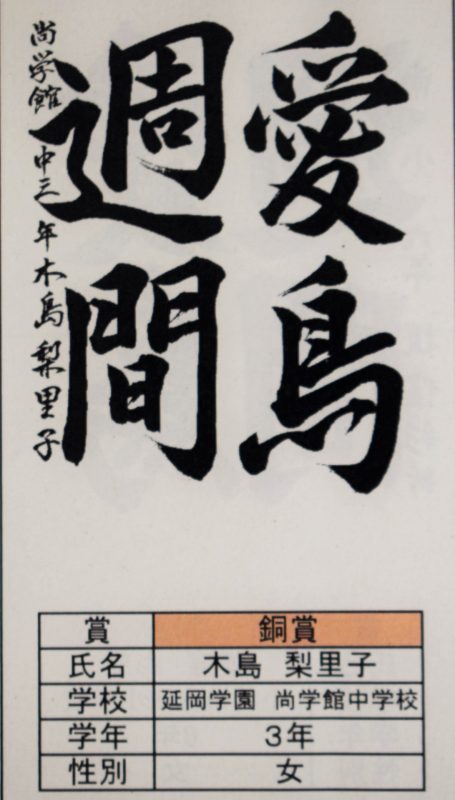 愛鳥
週間
尚学館 中三年 木島梨里子
賞 銅賞
氏名 木島 梨里子
学校 延岡学園 尚学館中学校
学年 3年
性別 女